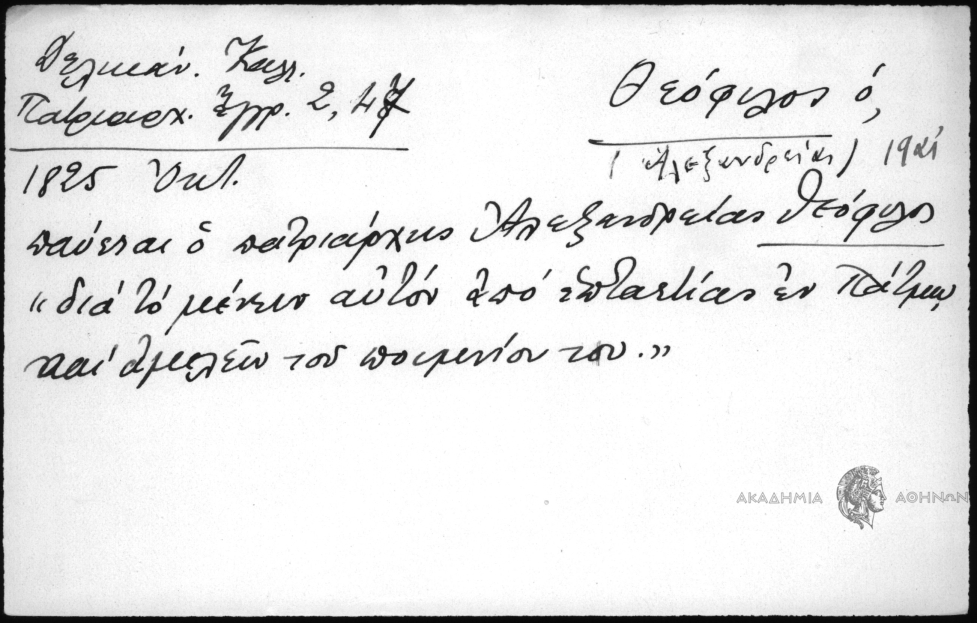 Δελικάν. Καλλ.
Πατριαρχ. Ἔγγρ. 2, 47
Θεόφιλος ὁ,
(Ἀλεξανδρείας)
1825 Ὀκτ.
παύεται ὁ πατριάρχης Ἀλεξανδρείας Θεόφιλος
«διά τό μένειν αὐτόν ἀπό ἑπταετίας ἐν Πάτμῳ,
καί ἀμελεῖν τοῦ ποιμνίου του.»
ΑΚΑΔΗΜΙΑ ΑΘΗΝΩΝ